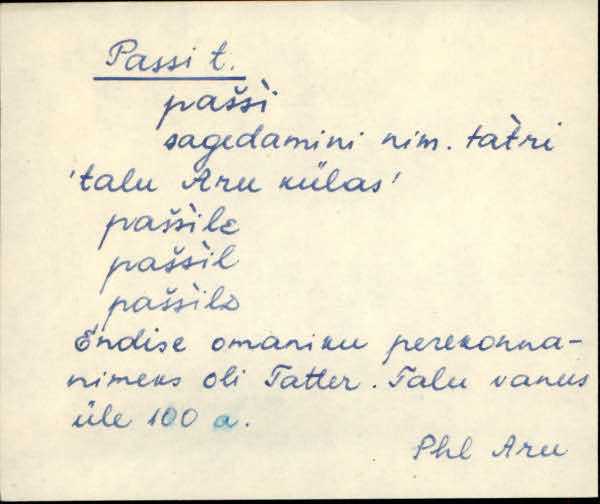 Passi t.
pašši̇̀
sagedamini nim. tat̀ri
'talu Aru külas'
pašši̇̀lɛ
pašši̇̀l
pašši̇̀lə
Endise omaniku perekonna-
nimeks oli Tatter. Talu vanus
üle 100 a.
Phl Aru